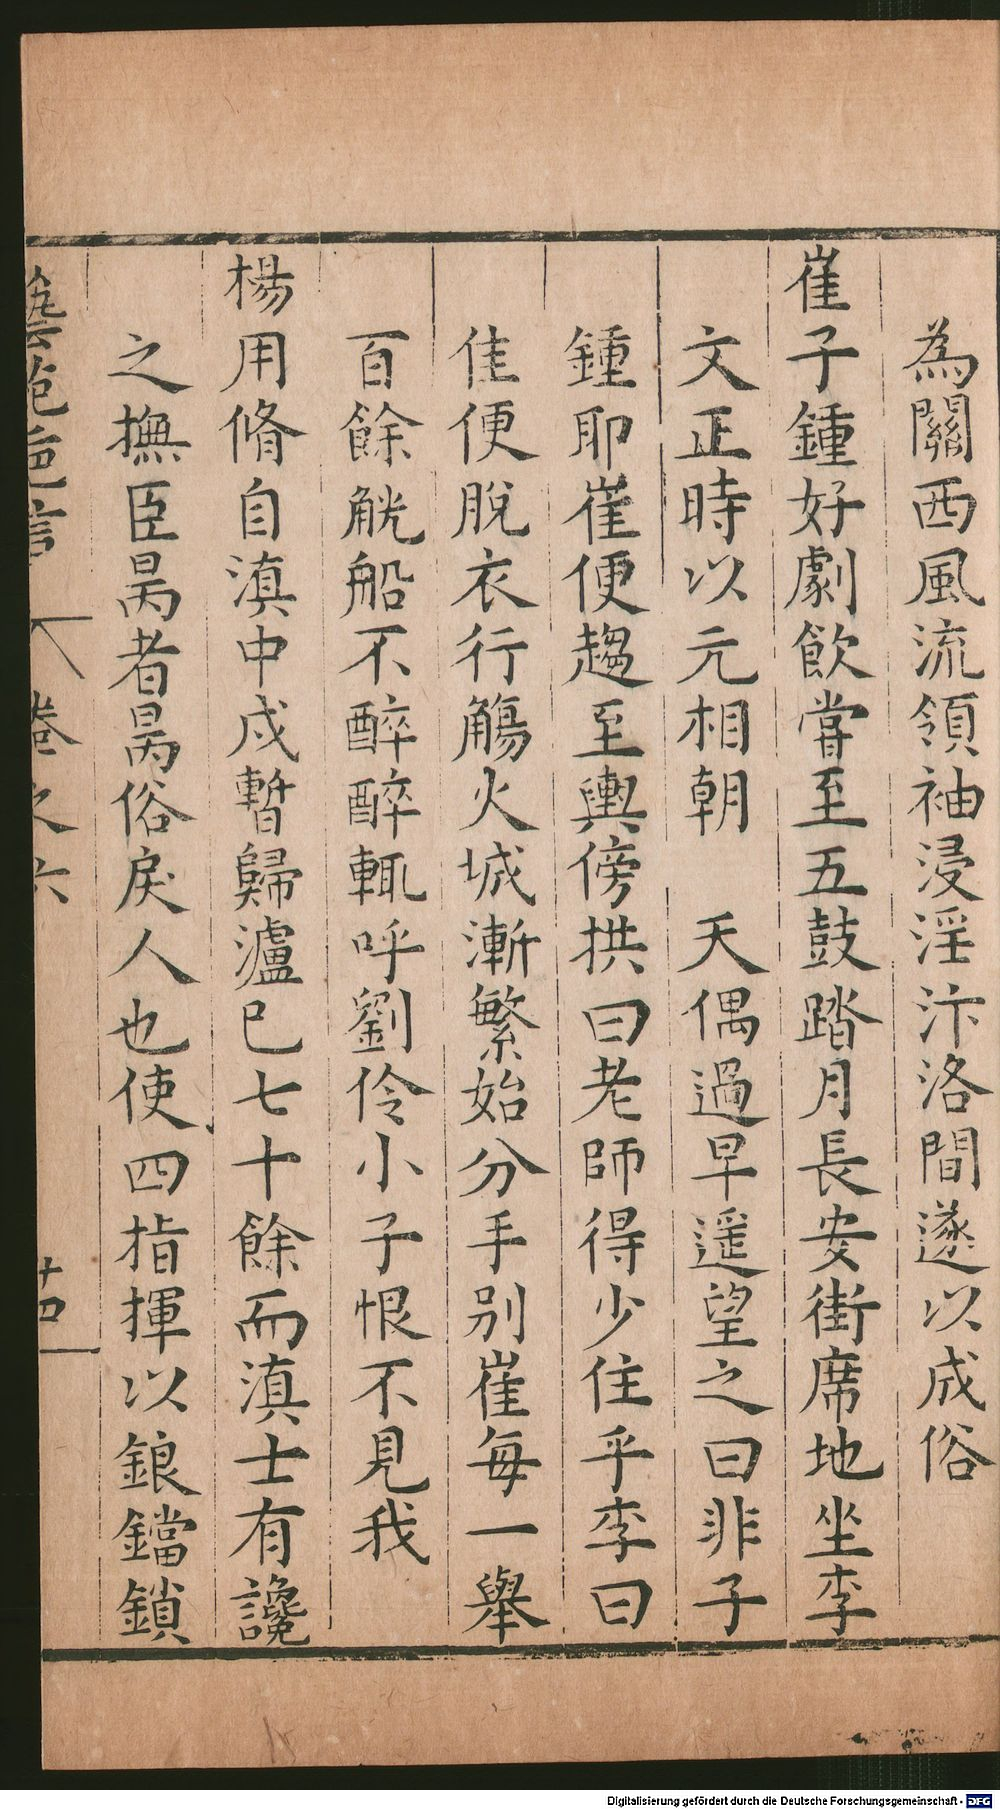 為關西風流領袖浸淫汴洛間遂以成俗
崔子鍾好劇飲嘗至五鼓踏月長安街席地坐李
文正時以元相朝 天偶過早遥望之曰非子
鍾耶崔便趨至輿傍拱曰老師得少住乎李曰
佳便脫衣行觴火城漸繁始分手别崔每一舉
百餘觥船不醉醉輒呼劉伶小子恨不見我
楊用脩自滇中戍暫歸瀘已七十餘而滇士有讒
之撫臣昺者昺俗戾人也使四指揮以鋃鐺鎖
藝苑巵言 卷之六 十四
Digitalisierung gefördert durch die Deutsche Forschungsgemeinschaft - DFG